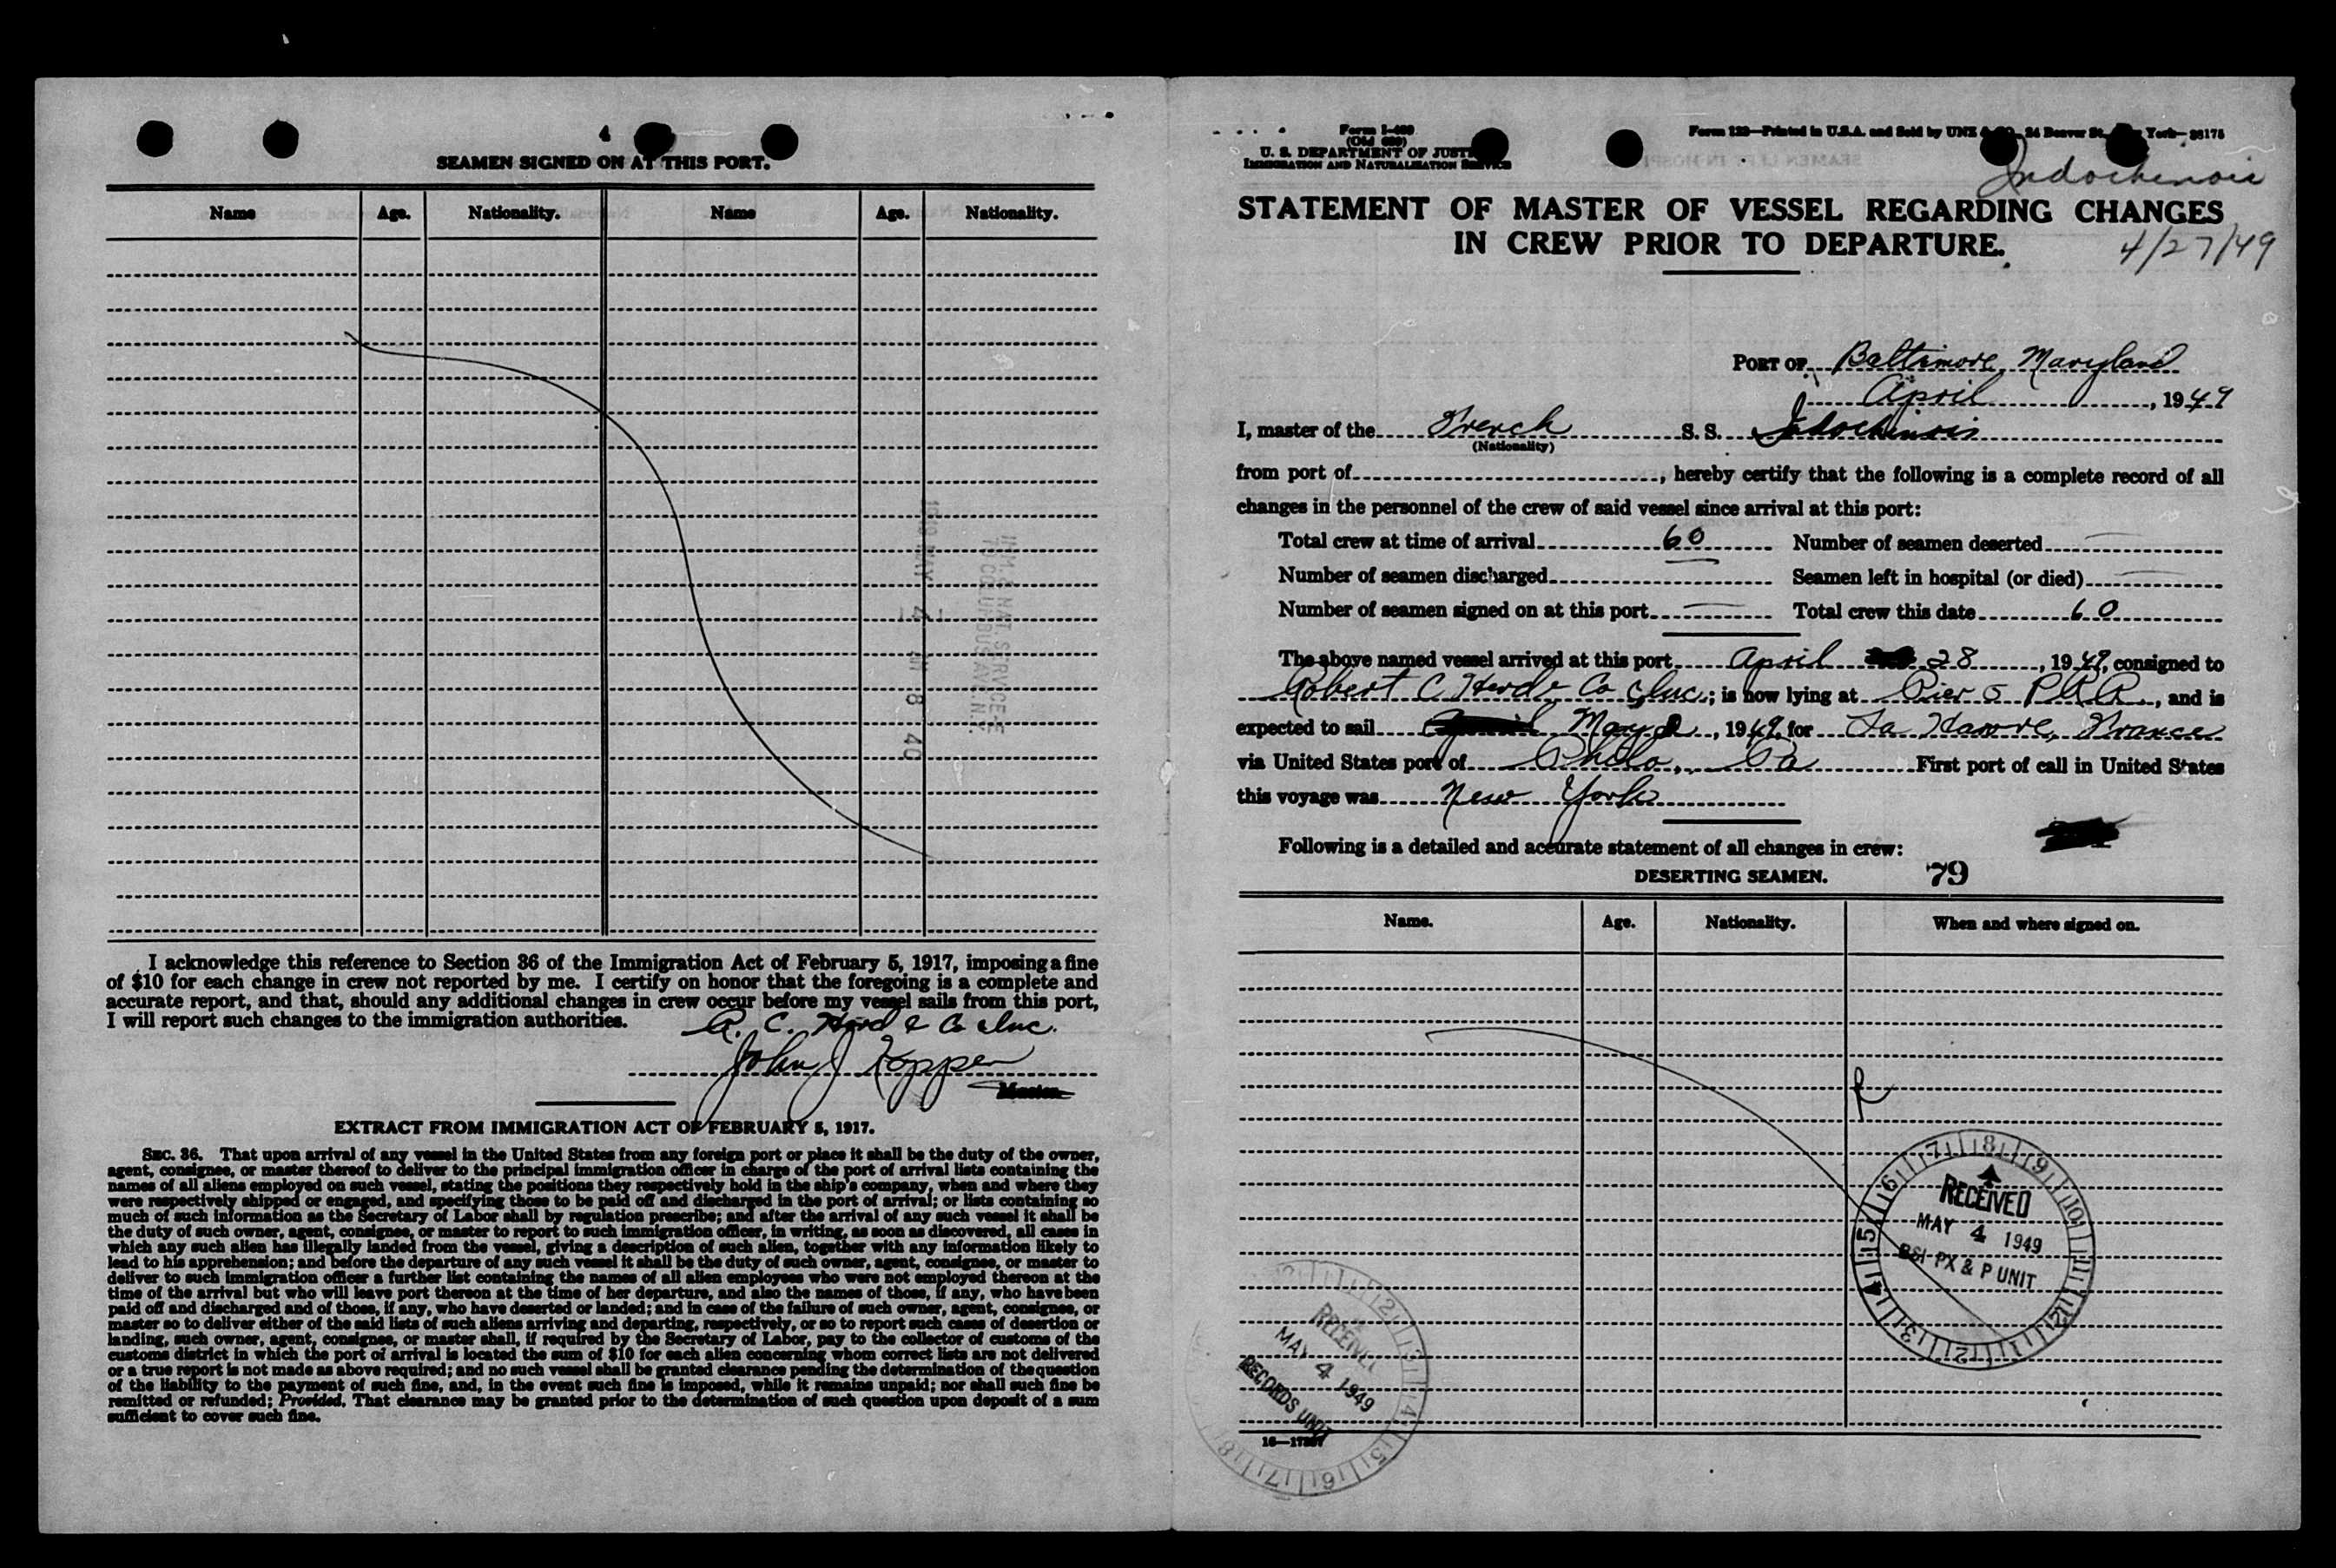 4
SEAMEN SIGNED ON AT THIS PORT.
Name Age. Nationality. Name Age. Nationality.
1949 MAY 4 AM 8 40
IMM. & NAT. SERVICE
70 COLUMBUS AV. N.Y.
I acknowledge this reference to Section 36 of the Immigration Act of February 5, 1917, imposing a fine
of $10 for each change in crew not reported by me. I certify on honor that the foregoing is a complete and
accurate report, and that, should any additional changes in crew occur before my vessel sails from this port,
I will report such changes to the immigration authorities.
R. C. Herd & Co Inc.
John J Kopper
Master.
EXTRACT FROM IMMIGRATION ACT OF FEBRUARY 5, 1917.
SEC. 36. That upon arrival of any vessel in the United States from any foreign port or place it shall be the duty of the owner,
agent, consignee, or master thereof to deliver to the principal immigration officer in charge of the port of arrival lists containing the
names of all aliens employed on such vessel, stating the positions they respectively hold in the ship's company, when and where they
were respectively shipped or engaged, and specifying those to be paid off and discharged in the port of arrival; or lists containing so
much of such information as the Secretary of Labor shall by regulation prescribe; and after the arrival of any such vessel it shall be
the duty of such owner, agent, consignee, or master to report to such immigration officer, in writing, as soon as discovered, all cases in
which any such alien has illegally landed from the vessel, giving a description of such alien, together with any information likely to
lead to his apprehension; and before the departure of any such vessel it shall be the duty of such owner, agent, consignee, or master to
deliver to such immigration officer a further list containing the names of all alien employees who were not employed thereon at the
time of the arrival but who will leave port thereon at the time of her departure, and also the names of those, if any, who have been
paid off and discharged and of those, if any, who have deserted or landed; and in case of the failure of such owner, agent, consignee, or
master so to deliver either of the said lists of such aliens arriving and departing, respectively, or so to report such cases of desertion or
landing, such owner, agent, consignee, or master shall, if required by the Secretary of Labor, pay to the collector of customs of the
customs district in which the port of arrival is located the sum of $10 for each alien concerning whom correct lists are not delivered
or a true report is not made as above required; and no such vessel shall be granted clearance pending the determination of the question
of the liability to the payment of such fine, and, in the event such fine is imposed, while it remains unpaid; nor shall such fine be
remitted or refunded; Provided, That clearance may be granted prior to the determination of such question upon deposit of a sum
sufficient to cover such fine.
Form I-489
(Old 689)
U. S. DEPARTMENT OF JUSTICE
IMMIGRATION AND NATURALIZATION SERVICE
Form 122—Printed in U.S.A. and Sold by UNZ & CO. 24 Beaver St. York—
Indochinois
STATEMENT OF MASTER OF VESSEL REGARDING CHANGES
IN CREW PRIOR TO DEPARTURE.
4/27/49
PORT OF Baltimore, Maryland
April, 1949
I, master of the French S. S. Indochinois
(Nationality)
from port of , hereby certify that the following is a complete record of all
changes in the personnel of the crew of said vessel since arrival at this port:
Total crew at time of arrival 60 Number of seamen deserted —
Number of seamen discharged — Seamen left in hospital (or died) —
Number of seamen signed on at this port — Total crew this date 60
The above named vessel arrived at this port April 28, 1949, consigned to
Robert C Herd & Co Inc.; is now lying at Pier 5 P.R.R., and is
expected to sail May 2, 1949, for La Havre, France
via United States port of Phila, Pa First port of call in United States
this voyage was New York
Following is a detailed and accurate statement of all changes in crew:
DESERTING SEAMEN. 79
Name. Age. Nationality. When and where signed on.
RECEIVED
MAY 4 1949
BSI-PX & P UNIT
RECEIVED
MAY 4 1949
RECORDS UNIT